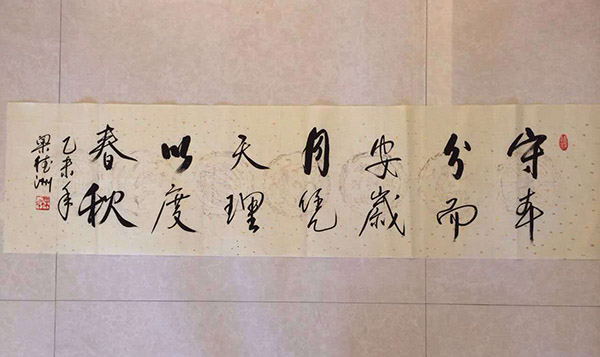 守本
分而
安歲
月凭
天理
以度
春秋
乙未年